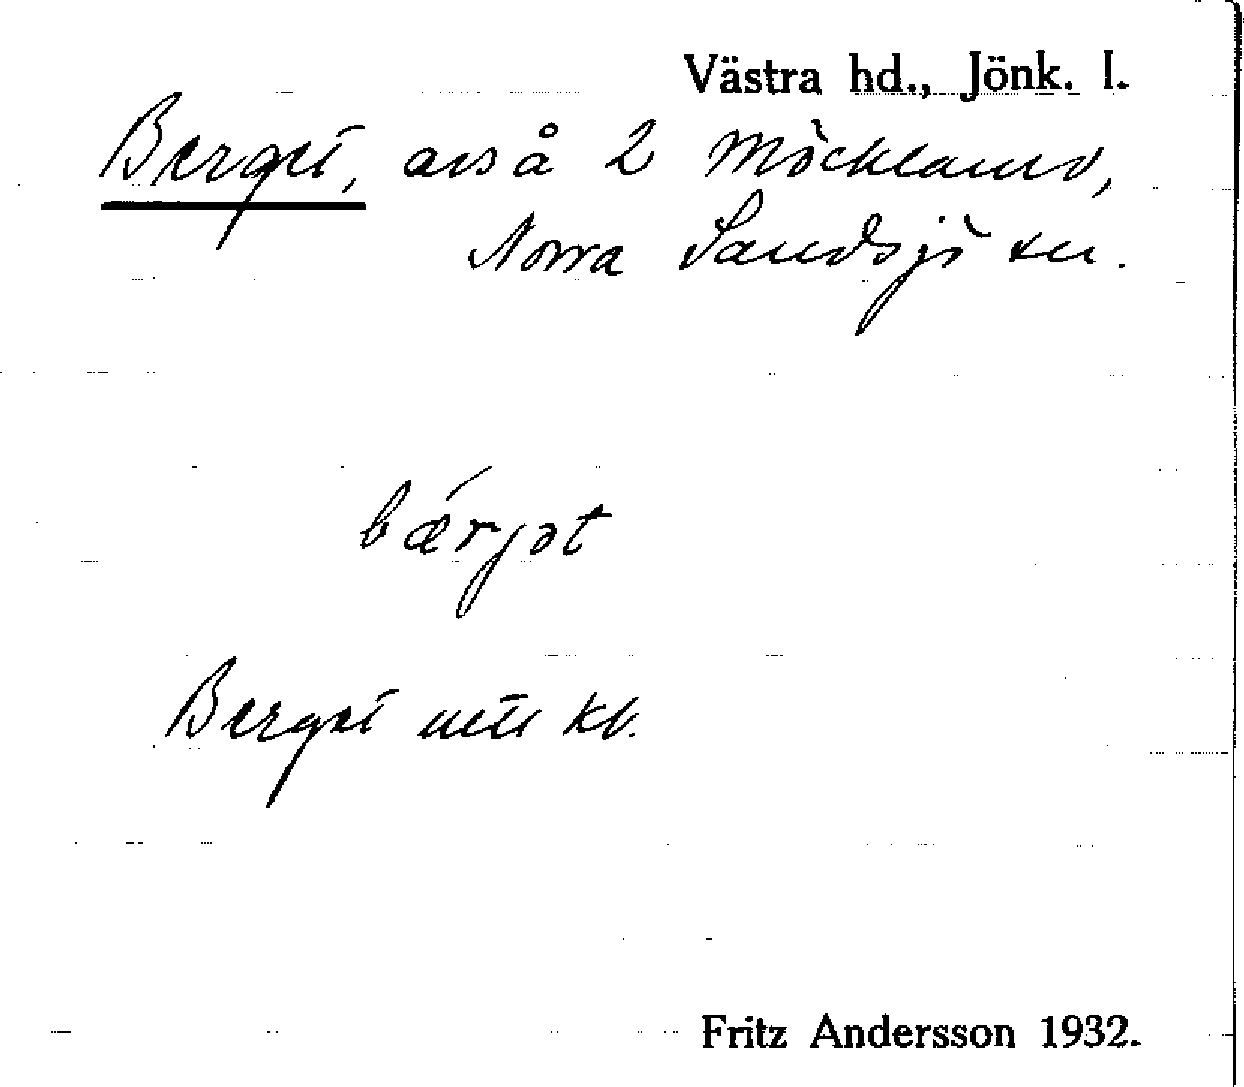 Västra hd., Jönk. l.
Berget, avs å 2 Möckland,
Norra Sandsjö sn.
bǽrjət
Berget utt kb.
Fritz Andersson 1932.